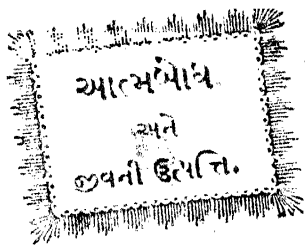 આત્મબોધ
અને
જીવની ઉત્પત્તિ.